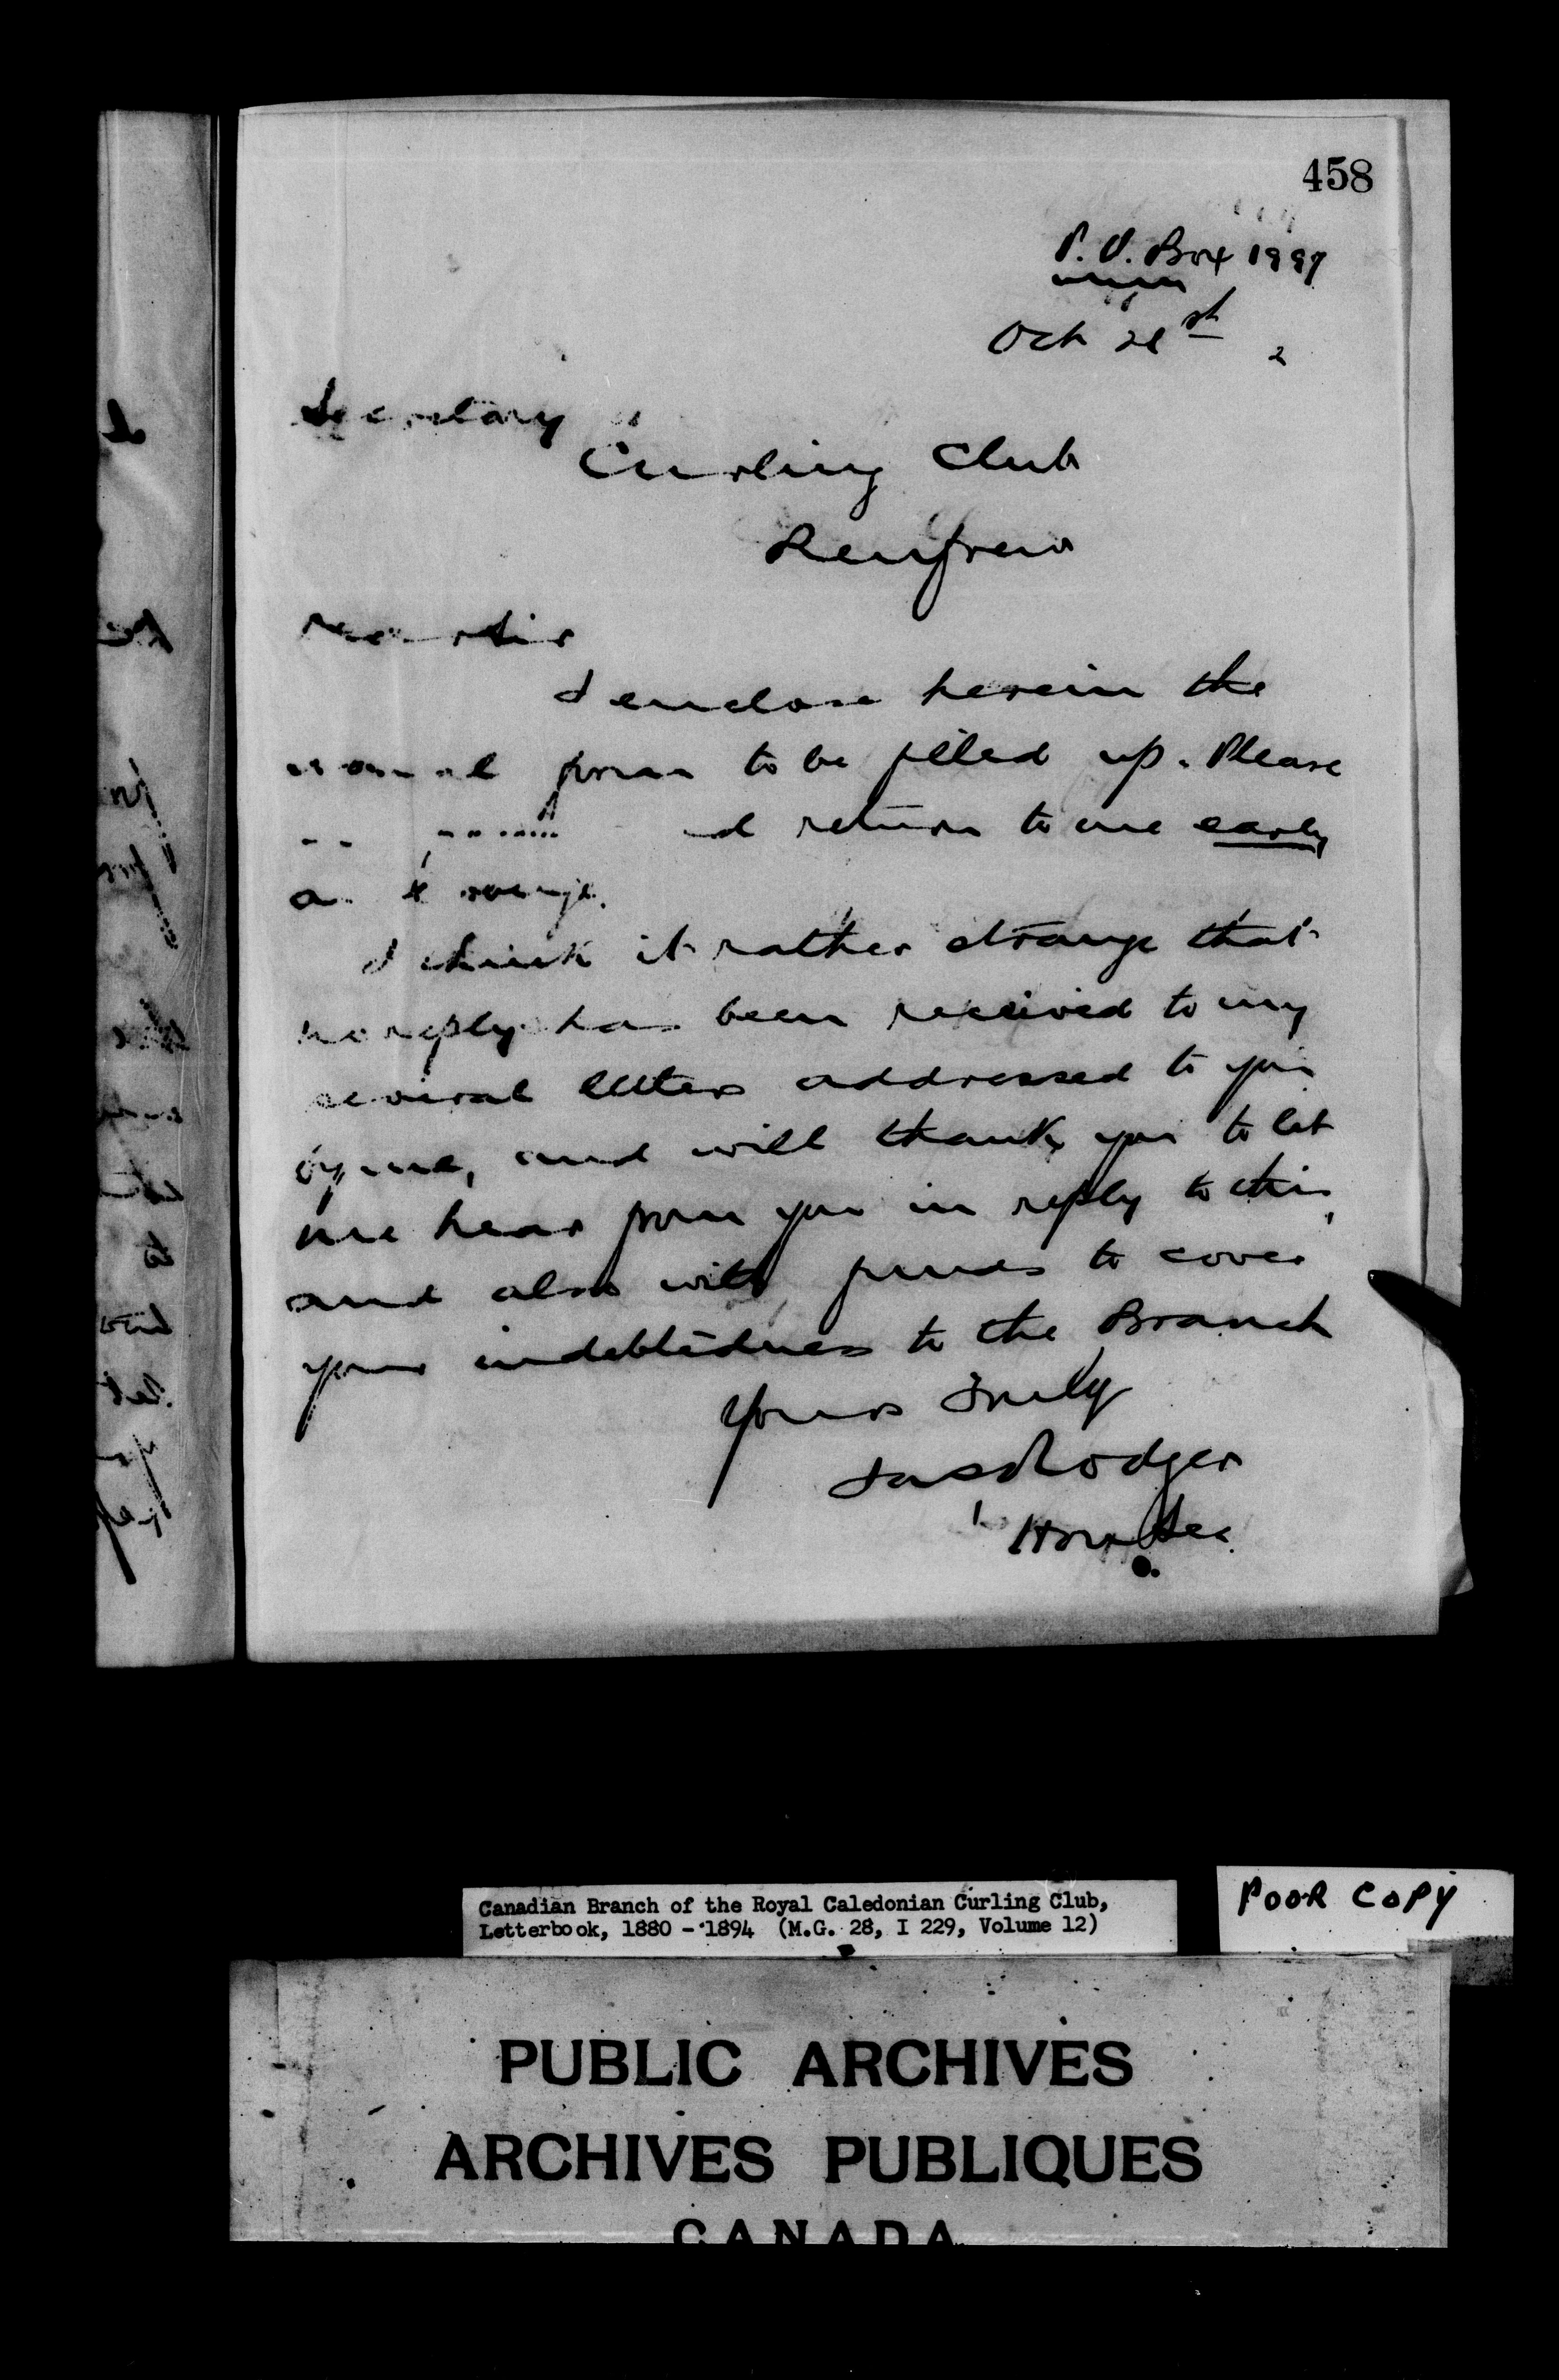 458
P.O. Box 1997
Oct 21st 2
Secretary
Curling Club
Renfrew
Dear Sir
I enclose herein the
annual form to be filled up. Please
and return to me early
I think it rather strange that
no reply has been received to my
several letters addressed to you
by me, and will thank you to let
me hear from you in reply to this,
and also with funds to cover
your indebtedness to the Branch
Yours Truly
Jas Rodger
Hon Sec
Canadian Branch of the Royal Caledonian Curling Club,
Letterbook, 1880 - 1894 (M.G. 28, I 229, Volume 12)
POOR COPY
PUBLIC ARCHIVES
ARCHIVES PUBLIQUES
CANADA